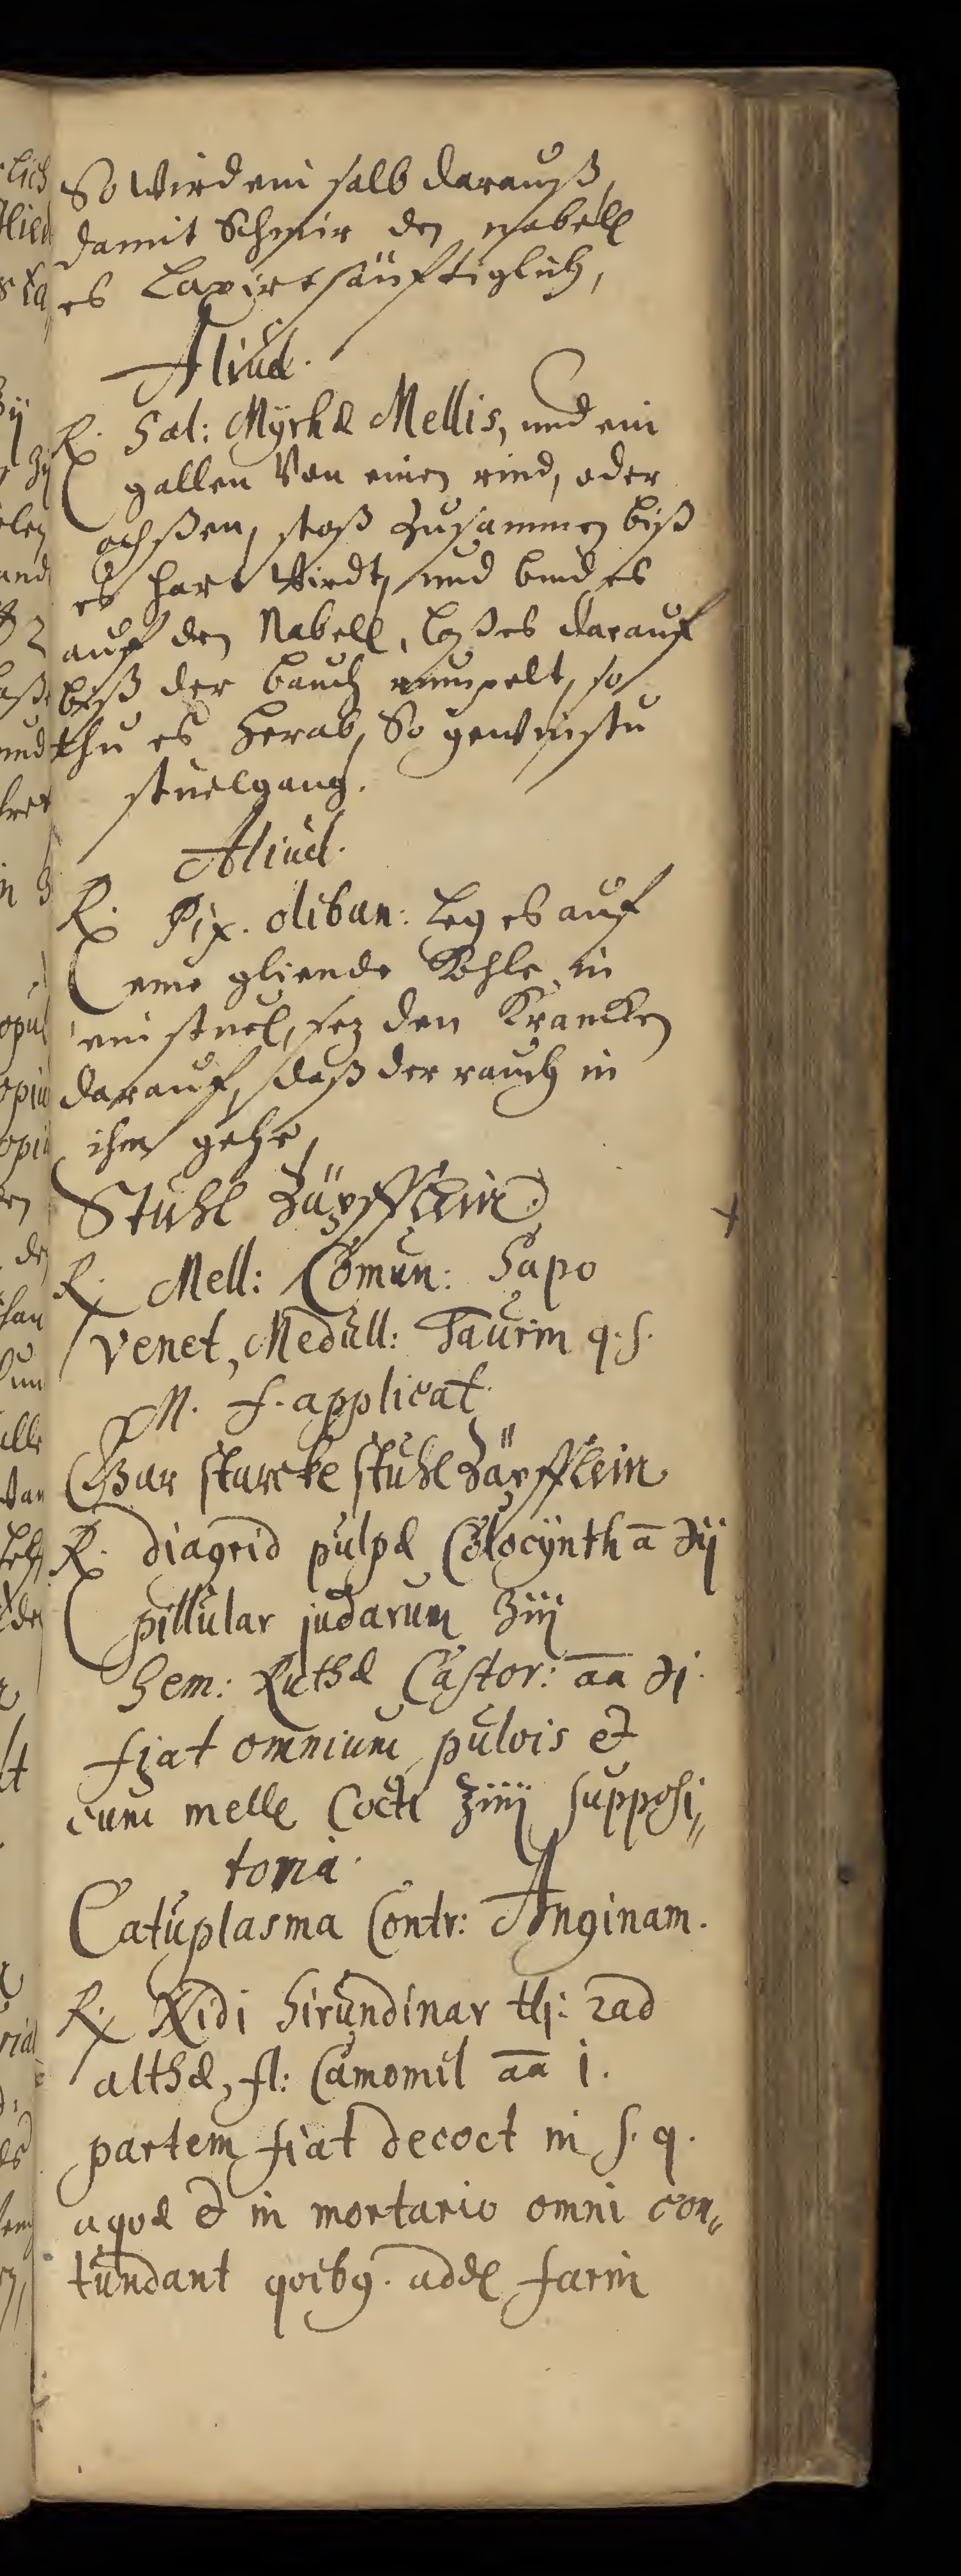 So Wird ein salb darauß,
damit Schmir den nabell
es Laxirt säuftiglich,
Aliud.
℞. Sal: Myrhæ Mellis, und ein
gallen Von einen rind, oder
ochßen, stoß Zusammen biß
es hart Wirdt, und bind es
auf den Nabell, laß es darauf
biß der bauch rumpelt, so
thu es herab, So gewinstu
stuelgang.
Aliud.
℞. Pix. oliban: leg es auf
eine gliende Kohle in
ein stuel, sez den Krancken
darauf, daß der rauch in
ihm gehe,
Stuhl Zäpfflein.
℞. Mell: Comun: Sapo
Venet, Medull: Taurin q. s.
M. f. applicat.
Gar starcke stuhl Zäpfflein
℞. diagrid pulpæ Colocÿnth ā ℈ij
pillular judarum ʒiij
Sem: Ruthæ Castor: āā ℈j.
fiat omnium pulvis et
cum melle Cocti ʒiiij supposi„
toria.
Cataplasma Contr: Anginam.
℞. Nidi hirundinar ℔j: rad
althæ, fl: Camomil āā j.
partem fiat decoct in s. q.
aquæ et in mortario omni con„
tundant quibg. adde farin